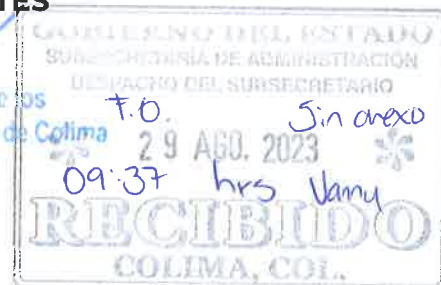 TES
GOBIERNO DEL ESTADO
SUBSECRETARÍA DE ADMINISTRACIÓN
DESPACHO DEL SUBSECRETARIO
os
T.O. Sin anexo
de Colima
29 AGO. 2023
09:37 hrs Vany
RECIBIDO
COLIMA, COL.